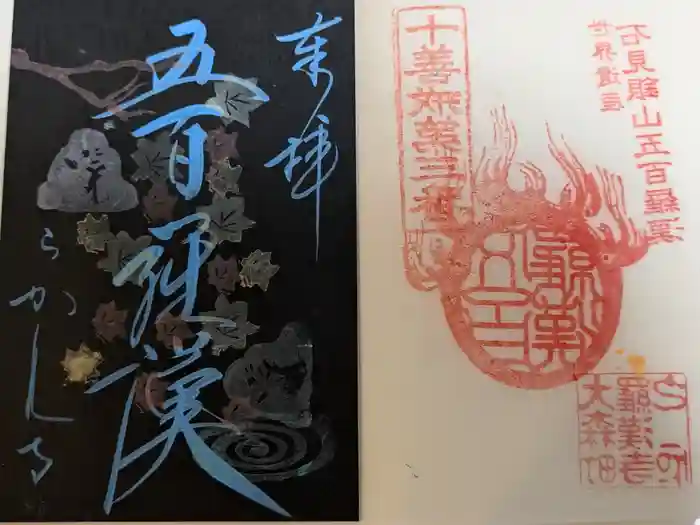 奉拝
五百羅漢
らかん寺
世界遺産
石見銀山五百羅漢
十善戒第三番
五百羅漢
石州
羅漢寺
大森畑